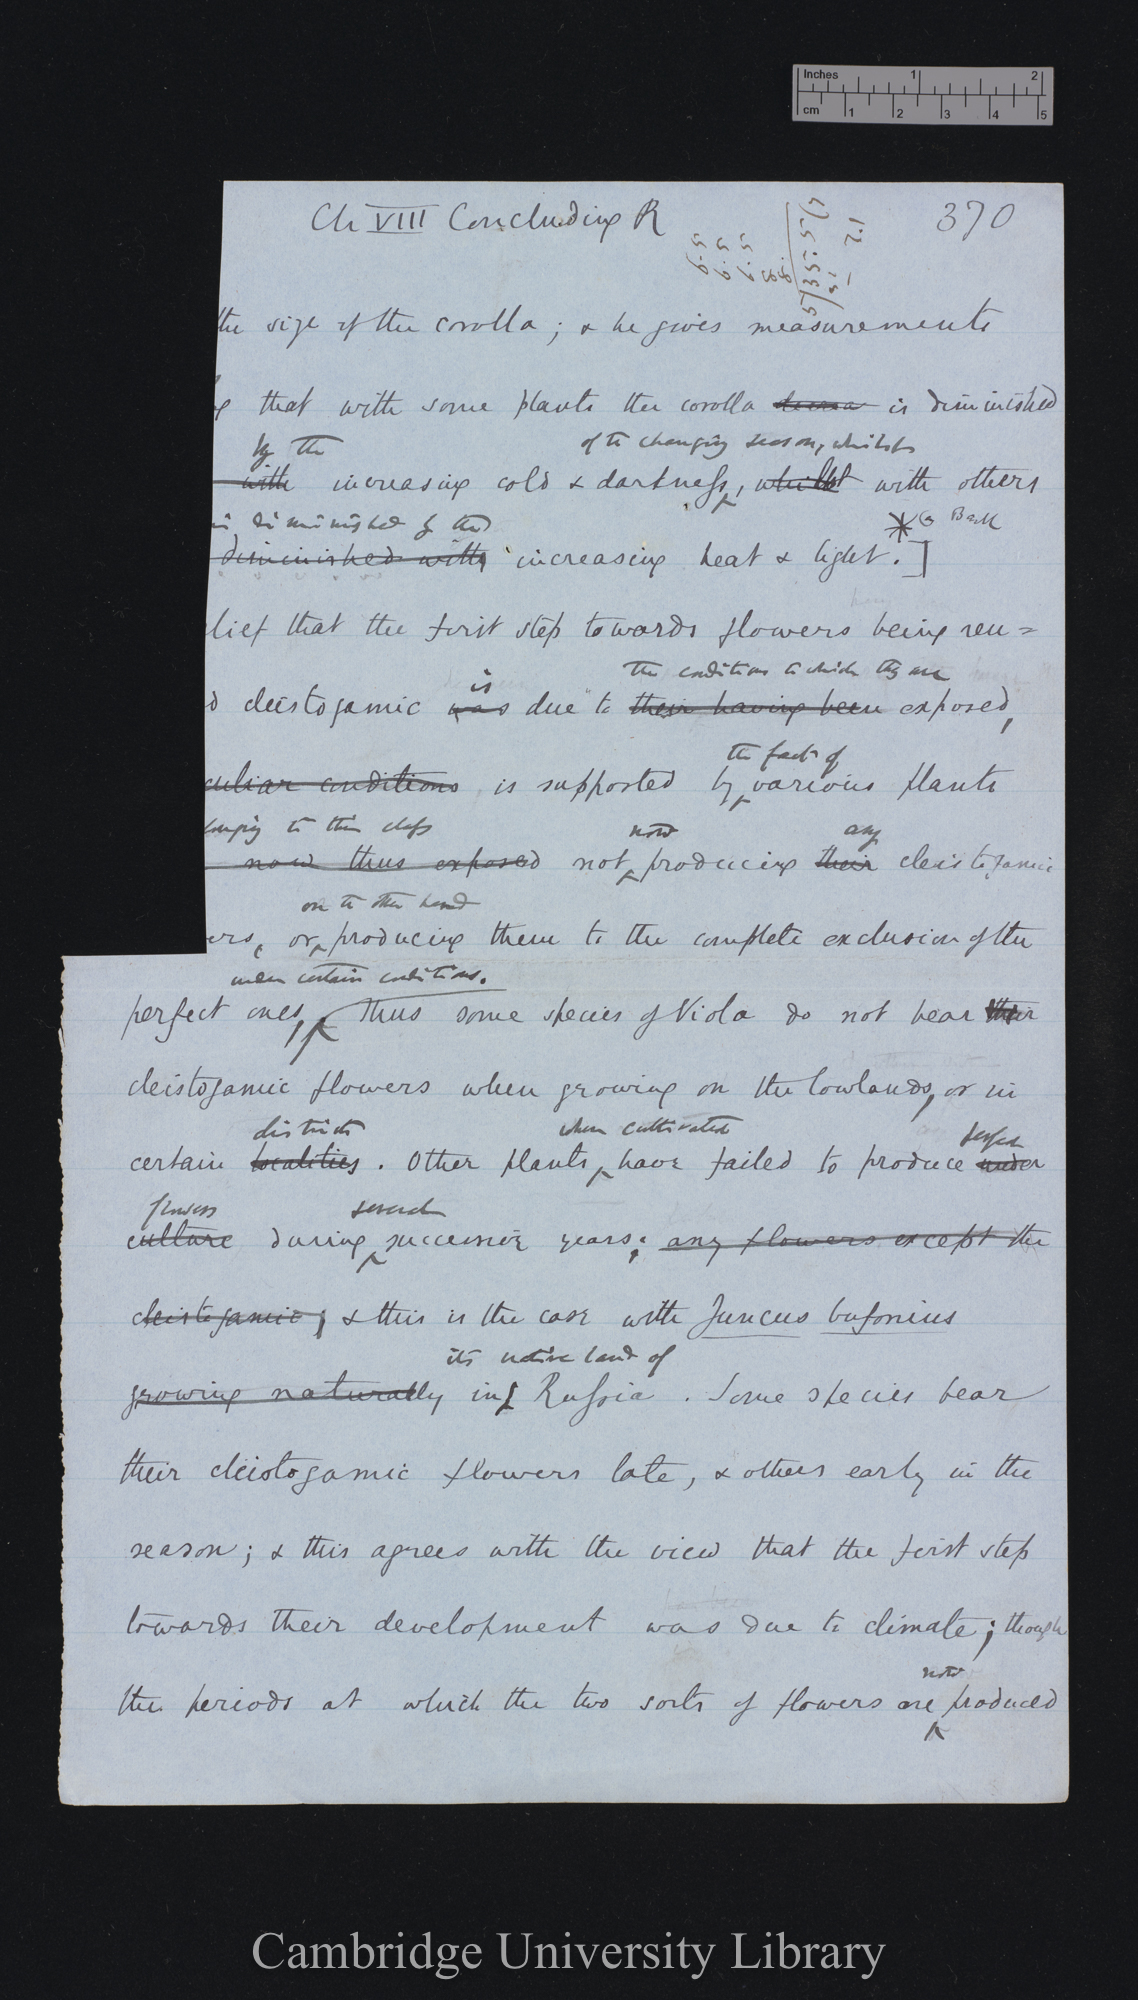 Inches 1 2
cm 1 2 3 4 5
Ch VIII Concluding R
370
the size of the corolla; & he gives measurements
that with some plants the corolla is diminished
by the of the changing season, whilst
with increasing cold & darkness, whilst with others
is diminished by the * Back
diminished with increasing heat & light.]
lief that the first step towards flowers being ren=
is the conditions to which they are
d cleistogamic was due to their having been exposed,
the fact of
culiar conditions is supported by various plants
longing to this class now any
now thus exposed not producing their cleistogamic
on the other hand
ers, or producing them to the complete exclusion of the
under certain conditions.
perfect ones, Thus some species of Viola do not bear their
cleistogamic flowers when growing on the lowlands, or in
districts when cultivated perfect
certain localities. Other plants have failed to produce under
flowers several
culture during successive years; any flowers except the
cleistogamic, & this is the case with Juncus bufonius
its native land of
growing naturally in Russia. Some species bear
their cleistogamic flowers late, & others early in the
season; & this agrees with the view that the first step
towards their development was due to climate; though
now
the periods at which the two sorts of flowers are produced
Cambridge University Library